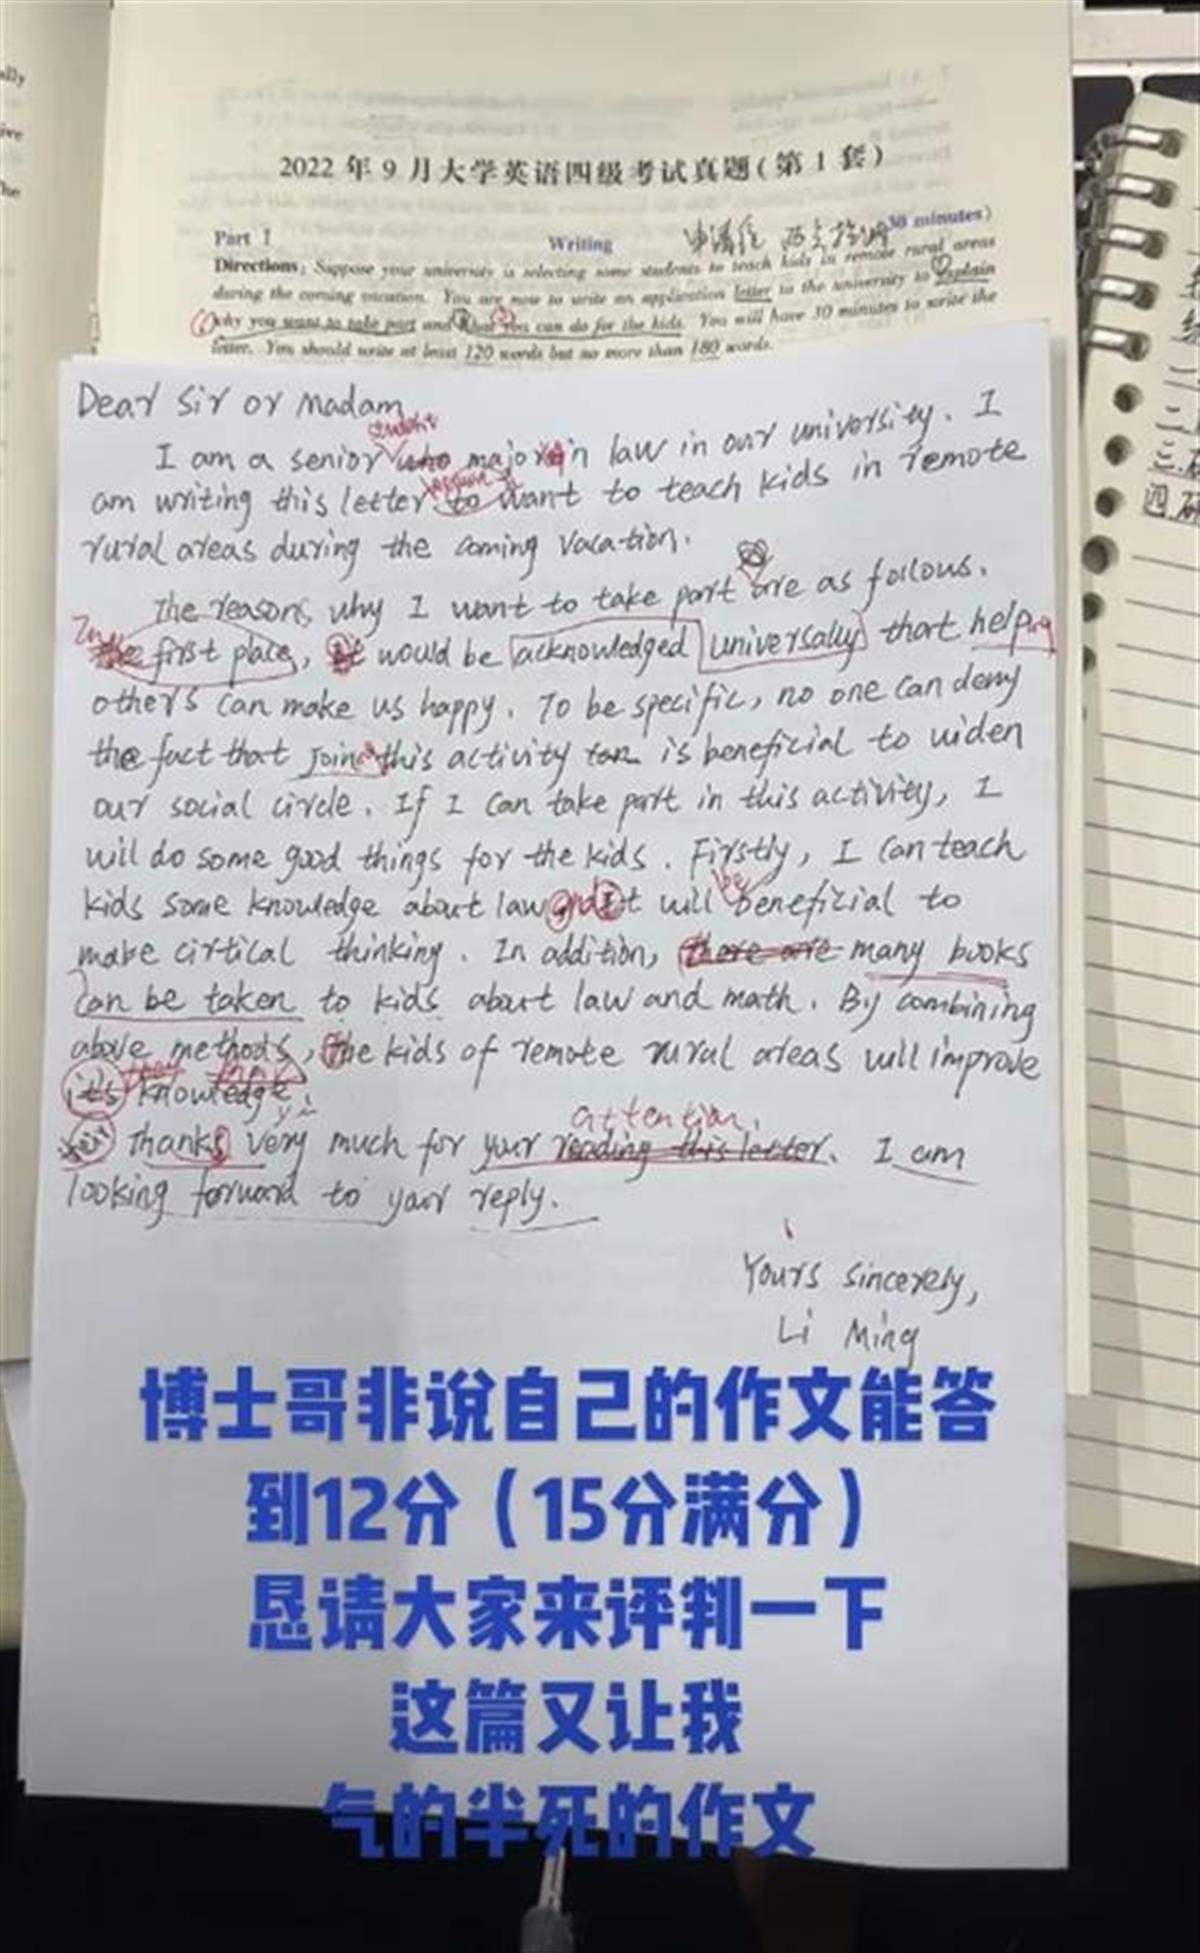 ally
ive
The
2022年9月大学英语四级考试真题(第1套)
Part I Writing 30 minutes)
Directions: Suppose your university is selecting some students to teach kids in remote rural areas
during the coming vacation. You are now to write an application letter to the university to explain
why you want to take part and what you can do for the kids. You will have 30 minutes to write the
letter. You should write at least 120 words but no more than 180 words.
Dear Sir or Madam
student
I am a senior who major in law in our university. I
am writing this letter to want to teach kids in remote
rural areas during the coming vacation.
The reasons why I want to take part are as follows.
In the first place, it would be acknowledged universally that helping
others can make us happy. To be specific, no one can deny
the fact that joining this activity can is beneficial to widen
our social circle. If I can take part in this activity, I
will do some good things for the kids. Firstly, I can teach
be
kids some knowledge about law and it will beneficial to
make cirtical thinking. In addition, there are many books
can be taken to kids about law and math. By combining
above methods, the kids of remote rural areas will improve
its knowledge.
attention.
Thanks very much for your reading this letter. I am
looking forward to your reply.
Yours sincerely,
Li Ming
博士哥非说自己的作文能答
到12分（15分满分）
恳请大家来评判一下
这篇又让我
气的半死的作文
一
二
三.
四.研